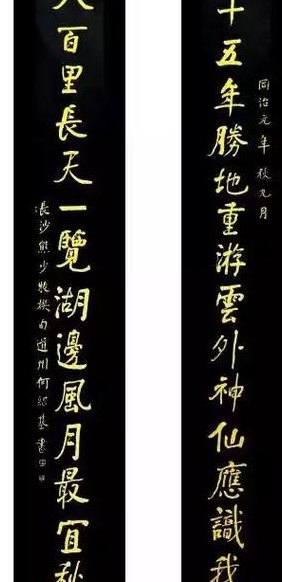 十五年勝地重游雲外神仙應識我
同治元年秋九月
八百里長天一覽湖邊風月最宜秋
長沙熊少牧撰句道州何紹基書